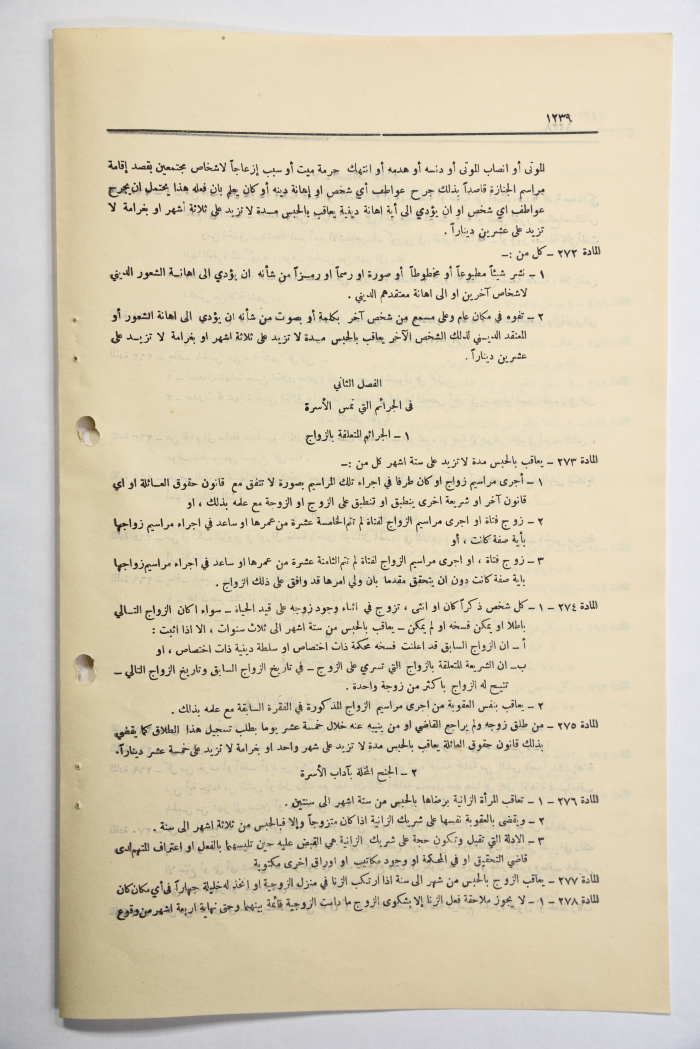 ١٢٣٩
الموتى أو انصاب الموتى أو دنسه أو هدمه أو انتهك حرمة ميت أو سبب إزعاجاً لاشخاص مجتمعين بقصد إقامة
مراسم الجنازة قاصداً بذلك جرح عواطف أي شخص او إهانة دينه أو كان يعلم بان فعله هذا يحتمل ان يجرح
عواطف اي شخص او ان يؤدي الى أية اهانة دينية يعاقب بالحبس مدة لا تزيد على ثلاثة أشهر او بغرامة لا
تزيد على عشرين ديناراً .
المادة ٢٧٢ – كل من :–
١ – نشر شيئاً مطبوعاً أو مخطوطاً أو صورة او رسماً او رمزاً من شأنه ان يؤدي الى اهانة الشعور الديني
لاشخاص آخرين او الى اهانة معتقدهم الديني .
٢ – تفوه في مكان عام وعلى مسمع من شخص آخر بكلمة أو بصوت من شأنه ان يؤدي الى اهانة الشعور أو
المعتقد الديني لذلك الشخص الآخر يعاقب بالحبس مدة لا تزيد على ثلاثة اشهر او بغرامة لا تزيد على
عشرين ديناراً .
الفصل الثاني
في الجرائم التي تمس الأسرة
١ – الجرائم المتعلقة بالزواج
المادة ٢٧٣ – يعاقب بالحبس مدة لا تزيد على سنة اشهر كل من :–
١ – أجرى مراسيم زواج او كان طرفا في اجراء تلك المراسيم بصورة لا تتفق مع قانون حقوق العائلة او اي
قانون آخر او شريعة اخرى ينطبق او تنطبق على الزوج او الزوجة مع علمه بذلك ، او
٢ – زوج فتاة او اجرى مراسيم الزواج لفتاة لم تتم الخامسة عشرة من عمرها او ساعد في اجراء مراسيم زواجها
بأية صفة كانت ، أو
٣ – زوج فتاة ، او اجرى مراسيم الزواج لفتاة لم تتم الثامنة عشرة من عمرها او ساعد في اجراء مراسيم زواجها
باية صفة كانت دون ان يتحقق مقدما بان ولي امرها قد وافق على ذلك الزواج .
المادة ٢٧٤ – ١ – كل شخص ذكراً كان او انثى ، تزوج في اثناء وجود زوجه على قيد الحياة – سواء اكان الزواج التالي
باطلا او يمكن فسخه او لم يمكن – يعاقب بالحبس من ستة اشهر الى ثلاث سنوات ، الا اذا اثبت :
أ – ان الزواج السابق قد اعلنت فسخه محكمة ذات اختصاص او سلطة دينية ذات اختصاص ، او
ب– ان الشريعة المتعلقة بالزواج التي تسري على الزوج – في تاريخ الزواج السابق وتاريخ الزواج التالي –
تتيح له الزواج باكثر من زوجة واحدة .
٢ – يعاقب بنفس العقوبة من اجرى مراسيم الزواج المذكورة في الفقرة السابقة مع علمه بذلك .
المادة ٢٧٥ – من طلق زوجه ولم يراجع القاضي او من ينيبه عنه خلال خمسة عشر يوما بطلب تسجيل هذا الطلاق كما يقضي
بذلك قانون حقوق العائلة يعاقب بالحبس مدة لا تزيد على شهر واحد او بغرامة لا تزيد على خمسة عشر ديناراً.
٢ – الجنح المخلة بآداب الأسرة
المادة ٢٧٦ – ١ – تعاقب المرأة الزانية برضاها بالحبس من ستة اشهر الى سنتين .
٢ – ويقضى بالعقوبة نفسها على شريك الزانية اذا كان متزوجاً وإلا فبالحبس من ثلاثة اشهر الى سنة .
٣ – الادلة التي تقبل وتكون حجة على شريك الزانية هي القبض عليه حين تلبسهما بالفعل او اعتراف المتهم لدى
قاضي التحقيق او في المحكمة او وجود مكاتيب او اوراق اخرى مكتوبة
المادة ٢٧٧ – يعاقب الزوج بالحبس من شهر الى سنة اذا ارتكب الزنا في منزل الزوجية او اتخذ له خليلة جهاراً في أي مكان كان
المادة ٢٧٨ – ١ – لا يجوز ملاحقة فعل الزنا إلا بشكوى الزوج ما دامت الزوجية قائمة بينهما وحتى نهاية اربعة اشهر من وقوع